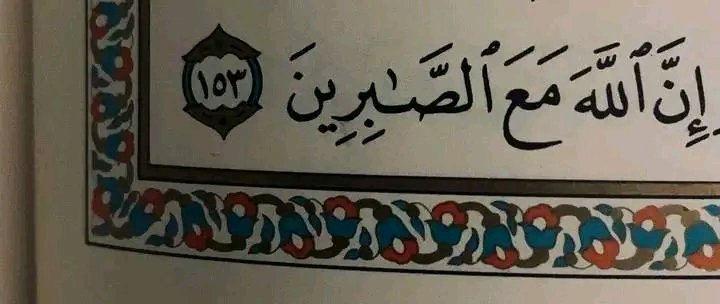 إِنَّ ٱللَّهَ مَعَ ٱلصَّـٰبِرِينَ ١٥٣